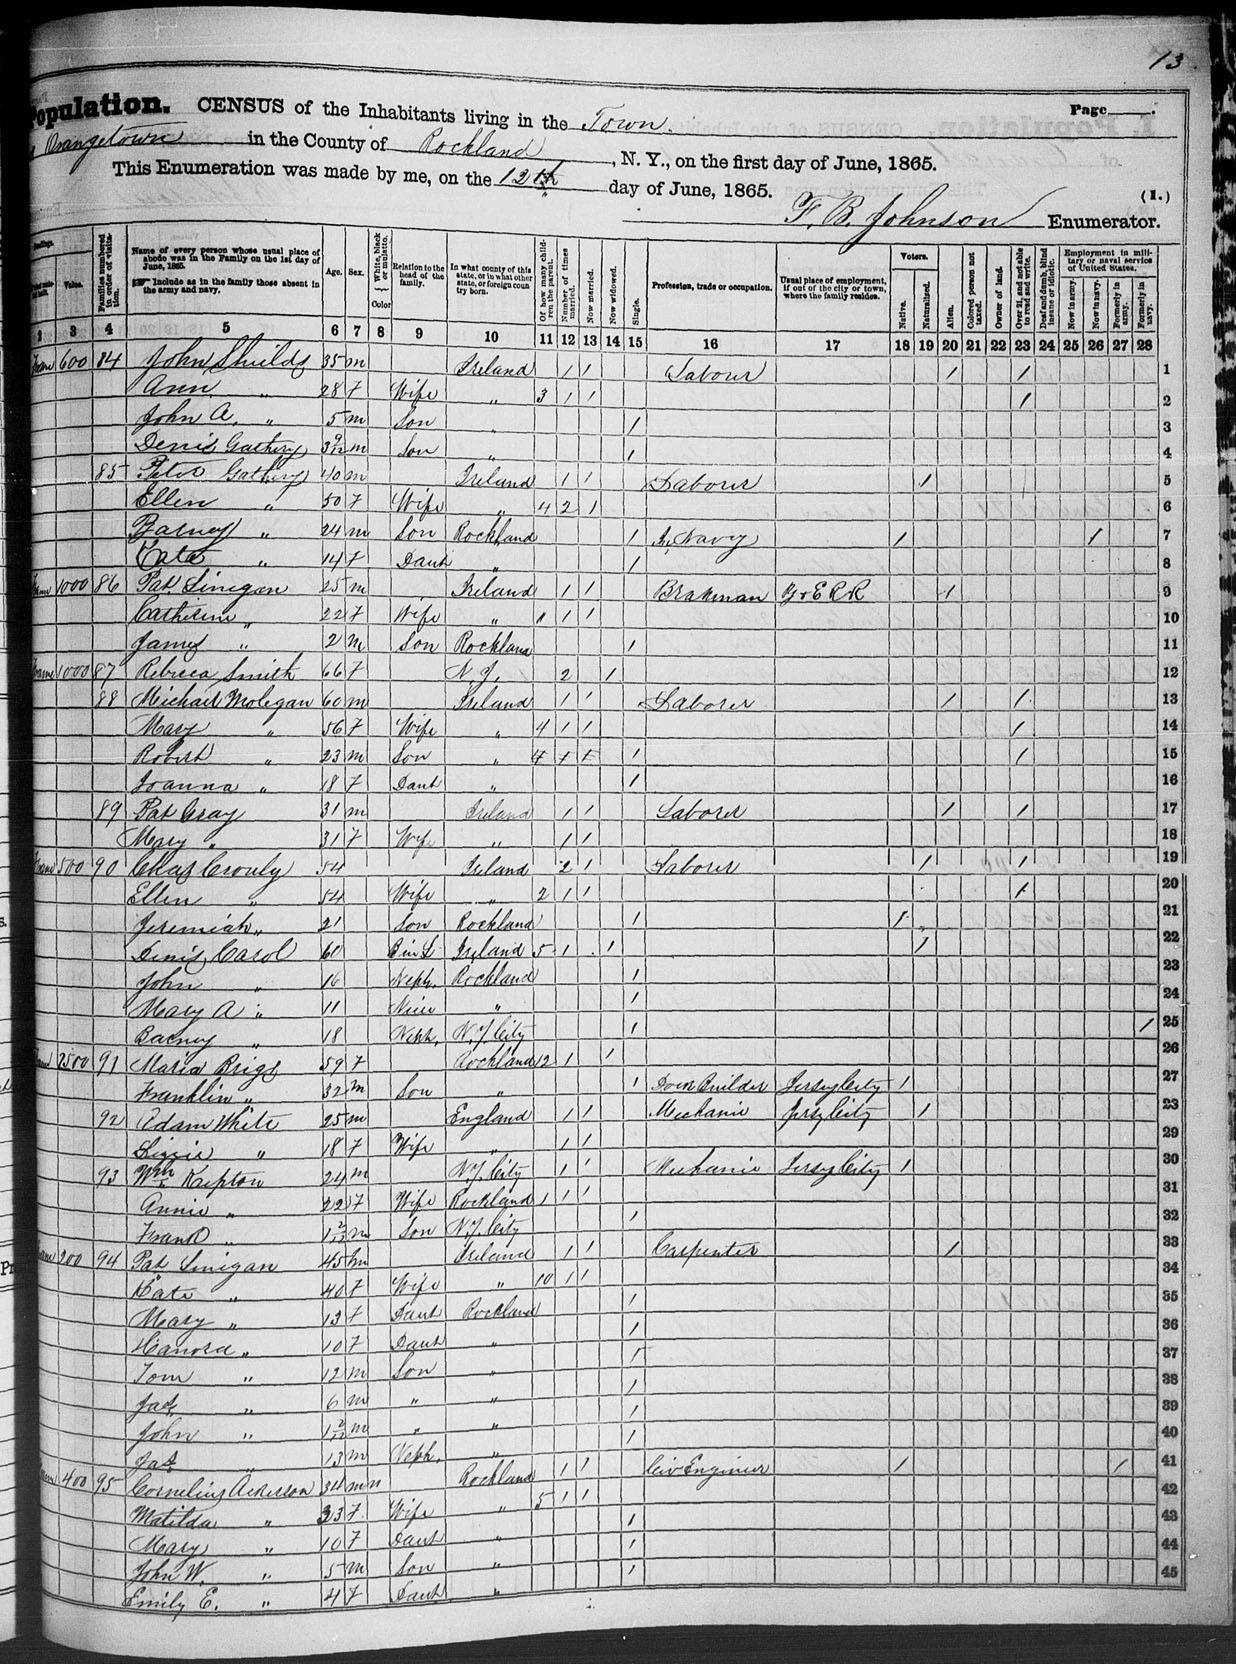 13
Population. CENSUS of the Inhabitants living in the Town. Page
Orangetown in the County of Rockland, N. Y., on the first day of June, 1865.
This Enumeration was made by me, on the 12th day of June, 1865. (1.)
F. B. Johnson Enumerator.
Value. Families numbered in order of visitation. Name of every person whose usual place of abode was in the Family on the 1st day of June, 1865. Include as in the family those absent in the army and navy. Age. Sex. White, black or mulatto. Color Relation to the head of the family. In what county of this state, or in what other state, or foreign country born. Of how many children the parent. Number of times married. Now married. Now widowed. Single. Profession, trade or occupation. Usual place of employment, if out of the city or town, where the family resides. Voters. Native. Naturalized. Alien. Colored person not taxed. Owner of land. Over 21, and not able to read and write. Deaf and dumb, blind insane or idiotic. Employment in military or naval service of United States. Now in army. Now in navy. Formerly in army. Formerly in navy.
2 3 4 5 6 7 8 9 10 11 12 13 14 15 16 17 18 19 20 21 22 23 24 25 26 27 28
600 84 John Shields 35 m Ireland 1 1 Labour 1 1 1
Ann " 28 F Wife " 3 1 1 1 2
John A. " 5 m Son " 1 3
Denis Gathery 3 9/12 m Son " 1 4
85 Peter Gathery 40 m Ireland 1 1 Laborer 1 5
Ellen " 50 F Wife " 4 2 1 6
Barney " 24 m Son Rockland 1 In Navy 1 1 7
Cate " 14 F Daut " 1 8
1000 86 Pat Linigan 25 m Ireland 1 1 Brakman Y & E R R 1 9
Catherine " 22 F Wife " 1 1 1 10
James " 2 m Son Rockland 1 11
1000 87 Rebecca Smith 66 F N. J. 2 1 12
88 Michael Molegan 60 m Ireland 1 1 Laborer 1 1 13
Mary " 56 F Wife " 4 1 1 1 14
Robert " 23 m Son " 4 1 1 1 1 15
Joanna " 18 F Daut " 1 16
89 Pat Gray 31 m Ireland 1 1 Laborer 1 1 17
Mary " 31 F Wife " 1 1 18
500 90 Chas Crouly 54 Ireland 2 1 Laborer 1 1 19
Ellen " 54 Wife " 2 1 1 1 20
Jeremiah " 21 Son Rockland 1 1 21
Denis Carol 60 Ireland 5 1 1 1 22
John " 16 Neph. Rockland 1 23
Mary A " 11 Niece " 1 24
Barney " 18 Neph. N. Y. City 1 1 25
2500 91 Maria Brigs 59 F Rockland 12 1 1 26
Franklin " 32 m Son " 1 Builder Jersey City 1 27
92 Adam White 25 m England 1 1 Mechanic Jersy City 1 28
Lizzie " 18 F Wife " 1 1 29
93 Wm. Kripton 24 m N. Y. City 1 1 Mechanic Jersy City 1 30
Annie " 22 F Wife Rockland 1 1 1 31
Frank " 1 2/12 m Son N. Y. City 1 32
200 94 Pat Linigan 45 m Ireland 1 1 Carpenter 1 33
Cate " 40 F Wife " 10 1 1 34
Mary " 13 F Daut Rockland 1 35
Hanora " 10 F Daut " 1 36
Tom " 12 m Son " 1 37
Jas. " 6 m " " 1 38
John " 1 2/12 m " " 1 39
Jas. " 13 m Neph. " 1 40
400 95 Cornelius Ackerson 34 m Rockland 1 1 Civ Enginier 1 1 41
Matilda " 33 F Wife " 5 1 1 42
Mary " 10 F Daut " 1 43
John W. " 5 m Son " 1 44
Emily E. " 4 F Daut " 1 45